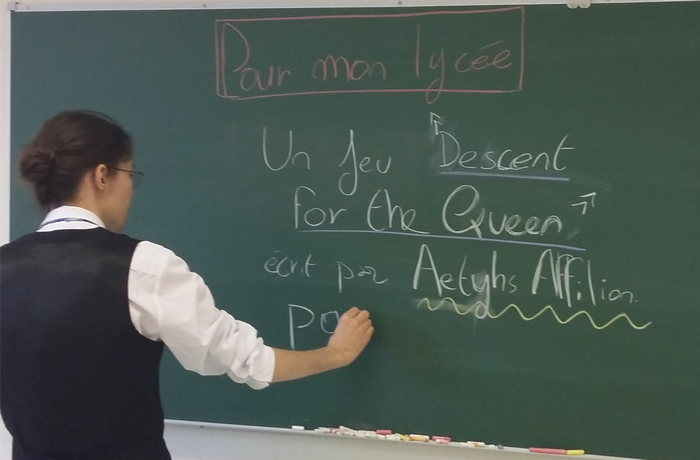 Pour mon lycée
Un Jeu "Descent
for the Queen"
écrit par Aetyhs Affilion.
po